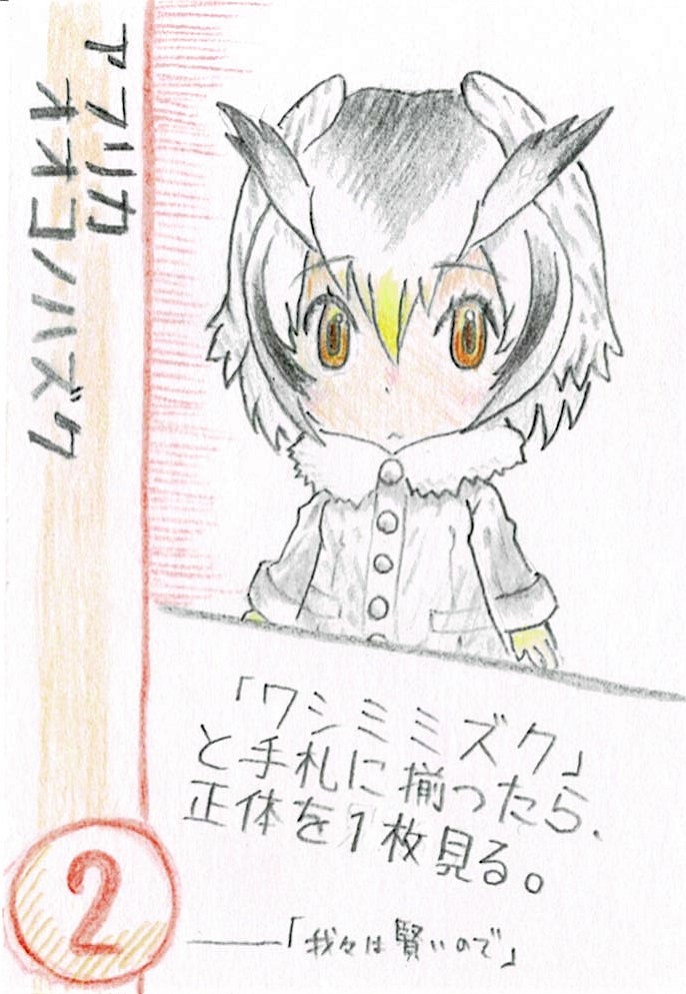 アフリカ
オオコノハズク
「ワシミミズク」
と手札に揃ったら、
正体を1枚見る。
2
──「我々は賢いので」